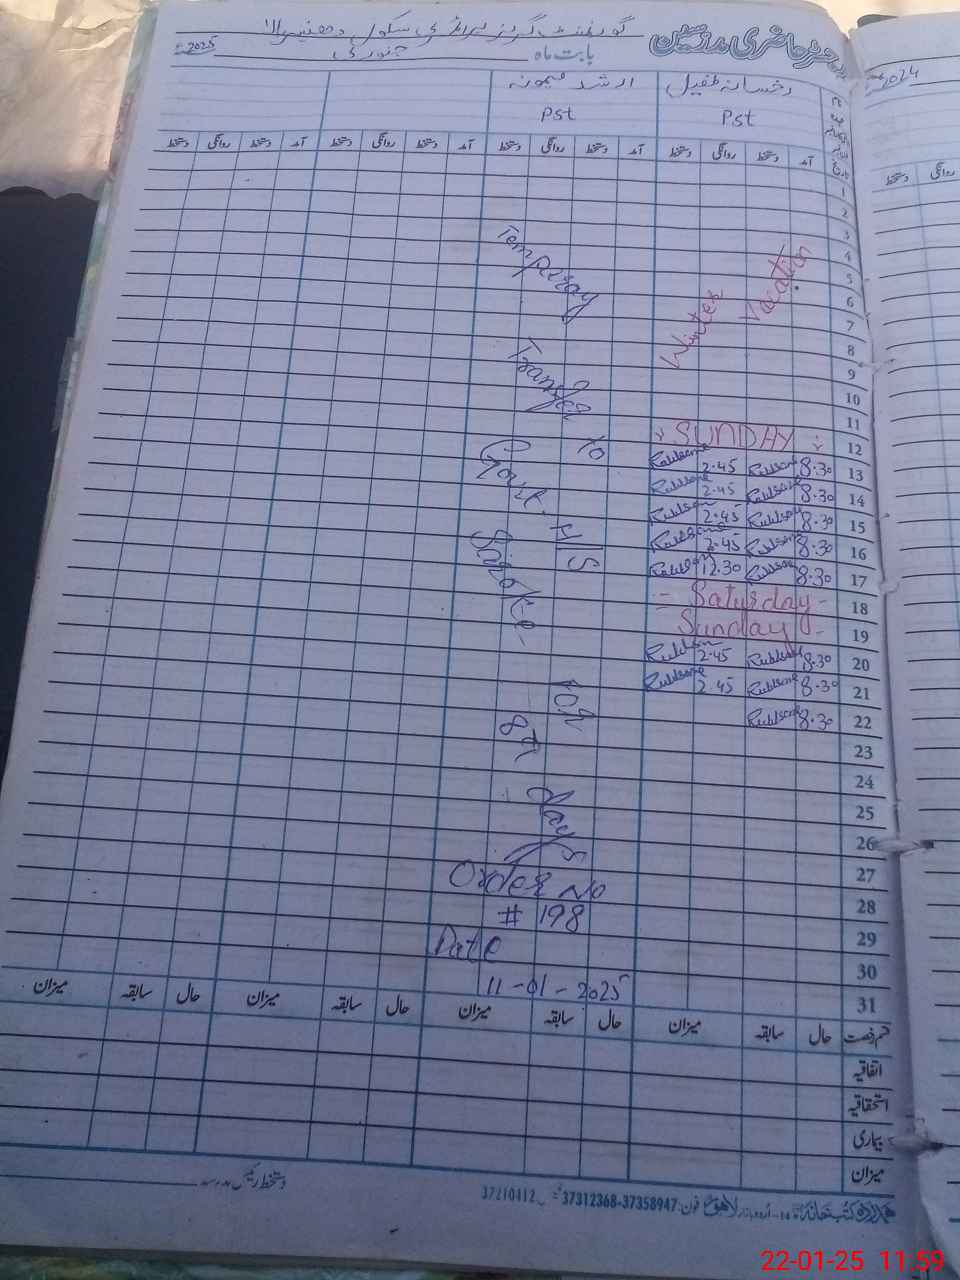 رجسٹر حاضری مدرسین گورنمنٹ گرلز پرائمری سکول
بابت ماہ جنوری 2025ء
رخسانہ طفیل ارشد میمونہ
Pst Pst
آمد دستخط روانگی دستخط آمد دستخط روانگی دستخط آمد دستخط روانگی دستخط آمد دستخط روانگی دستخط
1
2
3
4
5
6
7
8
9
10
11
Winter Vacation
12 SUNDAY
13 8.30 2.45
14 8.30 2.45
15 8.30 2.45
16 8.30 2.45
17 8.30 12.30
18 Saturday
19 Sunday
20 8.30 2.45
21 8.30 2.45
22 8.30
23
24
25
26
27
28
29
30
31
Temperay
Transfer
To
Govt. H/S
for
87
days
Order No
# 198
Date
11-01-2025
قسم رخصت حال سابقہ میزان حال سابقہ میزان حال سابقہ میزان حال سابقہ میزان
اتفاقیہ
استحقاقیہ
بیماری
میزان
دستخط رئیس مدرسہ
ہمدرد کتب خانہ اردو بازار لاہور فون: 37358947-37312368 37210412
2024
روانگی دستخط
22-01-25 11:59